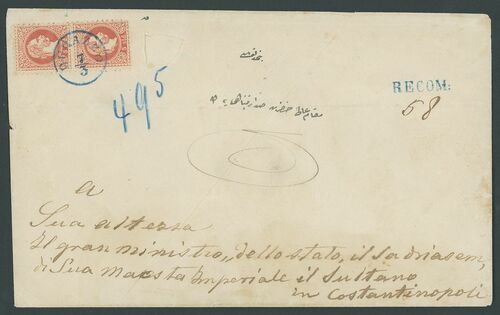 7/3
495
RECOM:
58
a
Sua altezza
Il gran ministro,, dello stato, il Sadriasem,
di Sua Maesta Imperiale il Sultano
in Costantinopoli